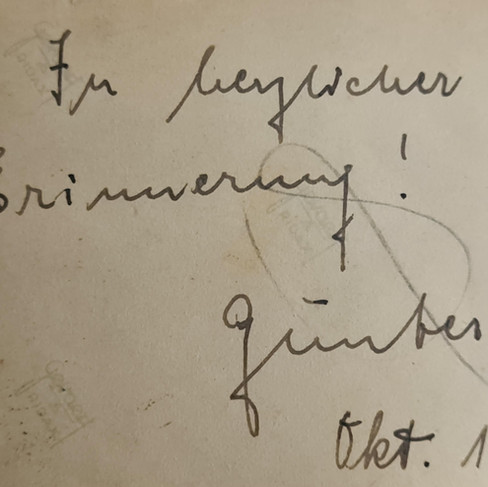 In herzlicher
Erinnerung!
Günter
Okt. 1